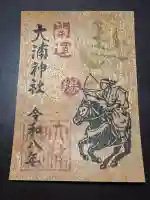 開運
大浦神社
令和八年